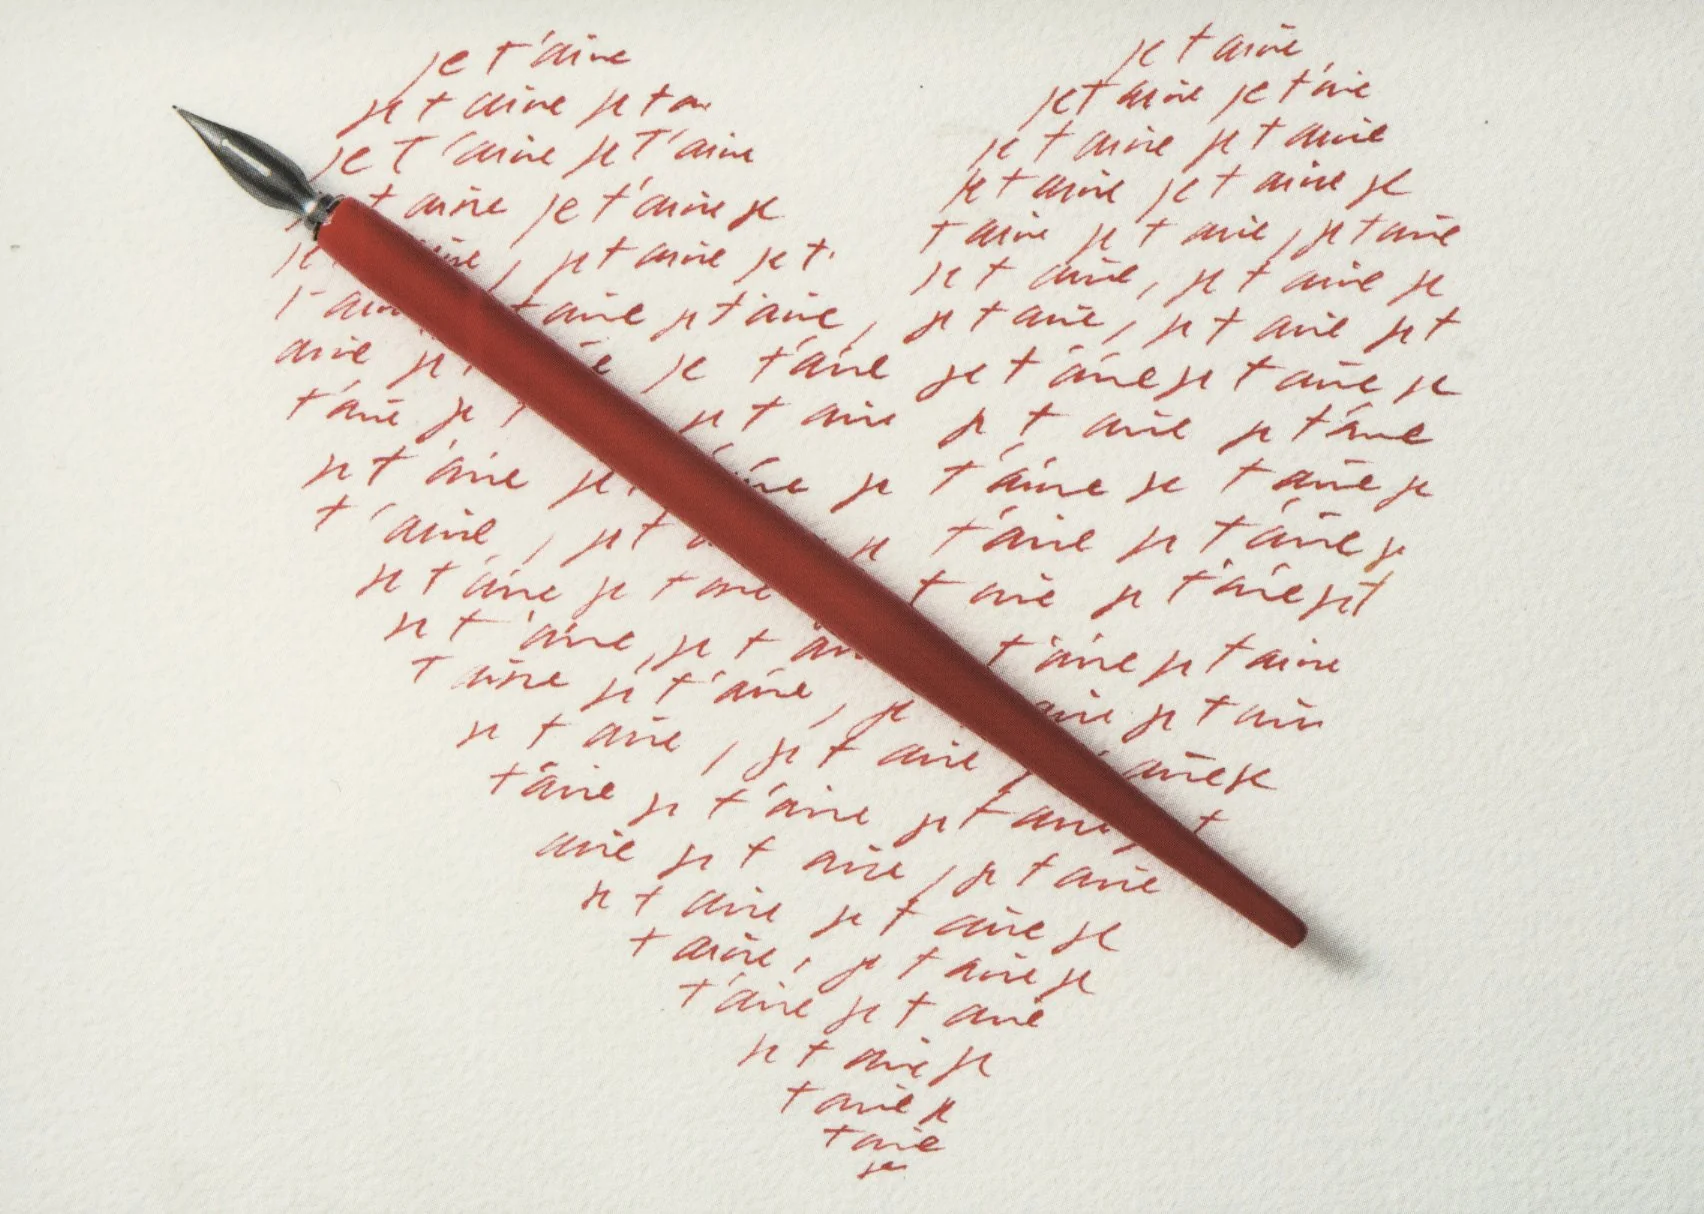 je t'aime
je t aime je t a
je t'aime je t'aime
t aime je t'aime je
je , je t aime je t
t'aime je t'aime,
aime je je t'aime
t'aime je t je t aime
je t'aime je je
t'aime, je t je
je t'aime je t aime
je t'aime, je t
t'aime je t'aime, je
je t aime, je t aime
t'aime je t'aime je t aime t
aime je t aime, je t aime
je t aime je t aime je
t aime, je t aime je
t'aime je t aime
je t aime je
t aime je
t aime
je
je t aime
je t aime je t'aime
je t aime je t aime
je t aime je t aime je
t aime je t aime, je t aime
je t aime, je t aime je
je t aime, je t aime je t
je t'aime je t aime je
je t aime je t'aime
t'aime je t aime je
t'aime je t'aime je
t aime je t'aime je t
t'aime je t aime
aime je t aime
aime je